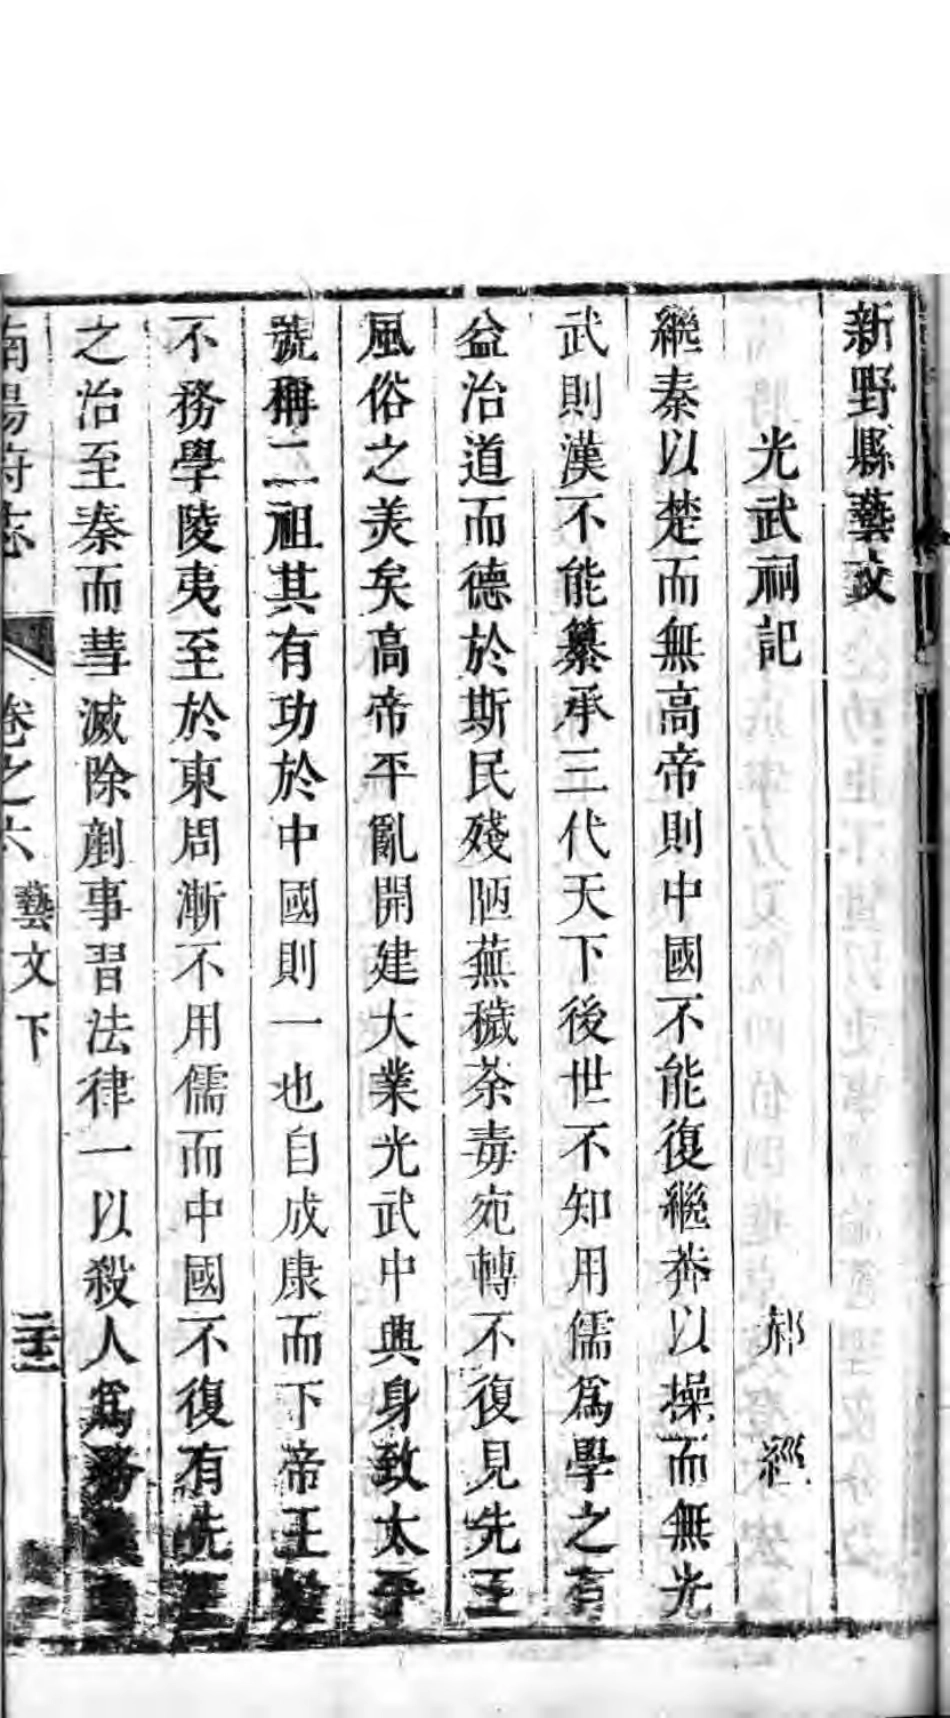 新野縣藝文
光武祠記 郝經
繼秦以楚而無高帝則中國不能復繼莽以操而無光
武則漢不能纂承三代天下後世不知用儒爲學之有
益治道而德於斯民殘陋蕪穢荼毒宛轉不復見先王
風俗之美矣高帝平亂開建大業光武中興身致太平
號稱二祖其有功於中國則一也自成康而下帝王
不務學陵夷至於東周漸不用儒而中國不復有先王
之治至秦而彗滅除剷事習法律一以殺人爲務
南陽府志 卷之六 藝文下